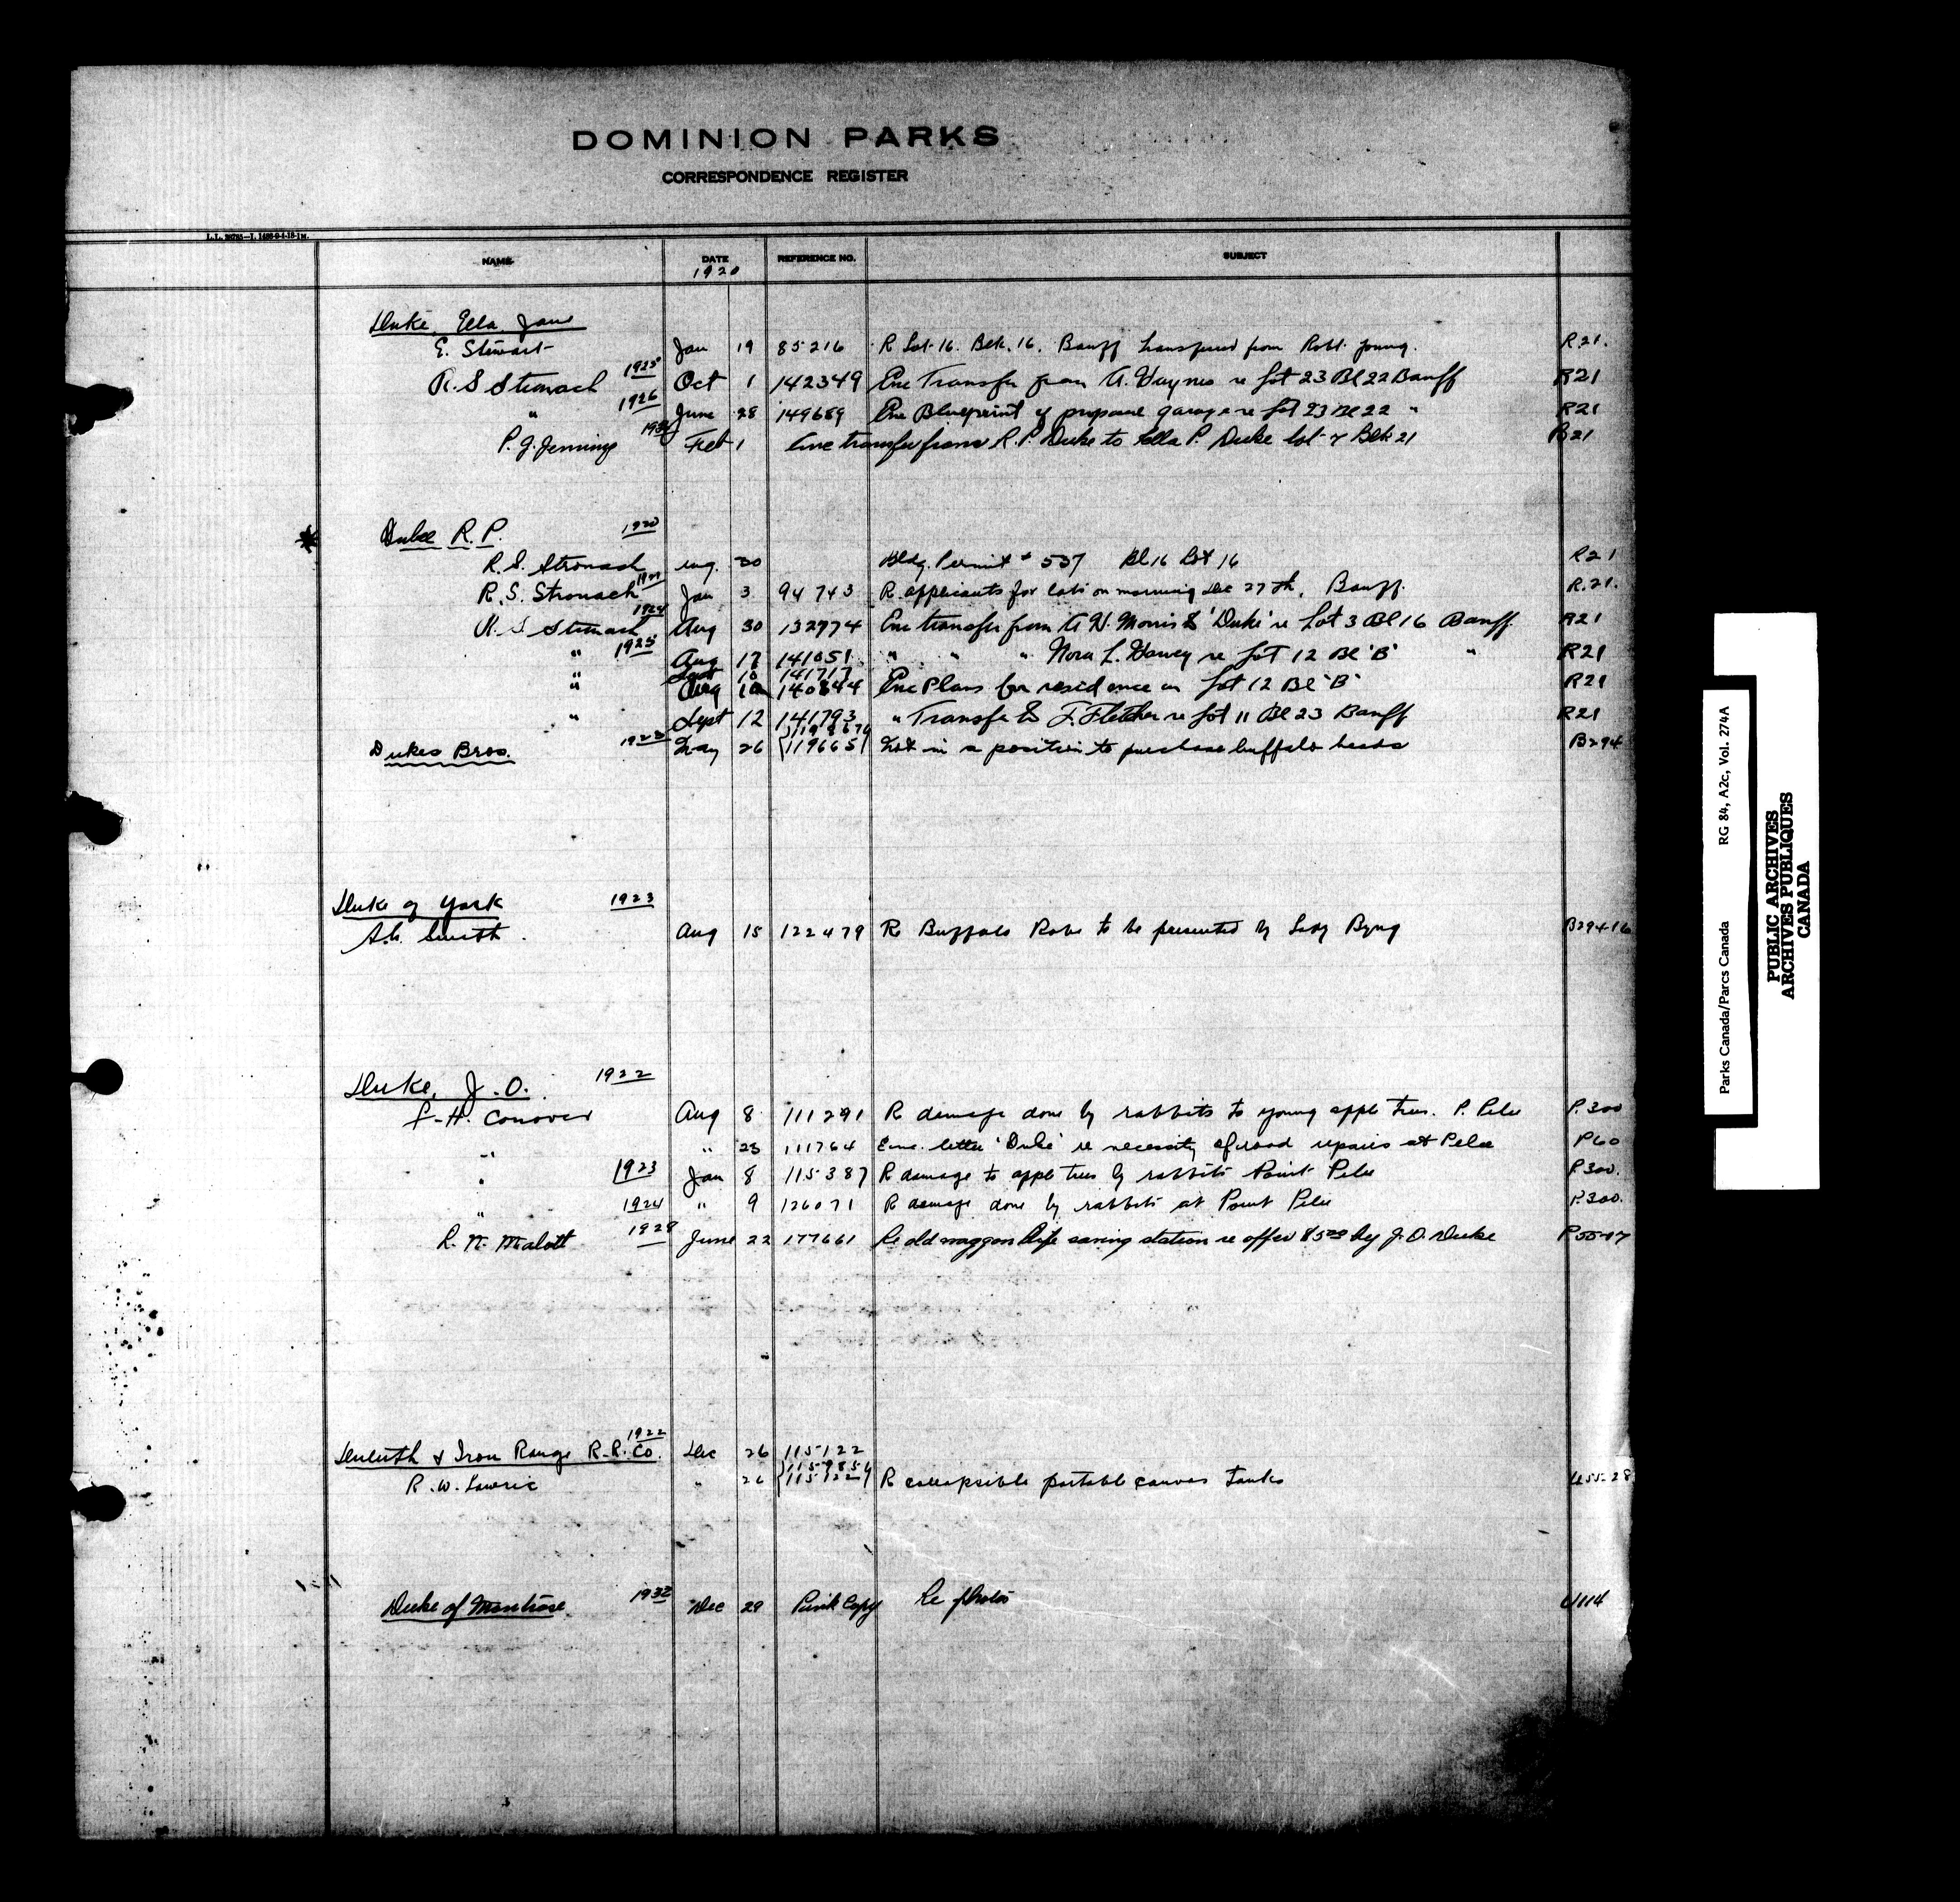 DOMINION PARKS
CORRESPONDENCE REGISTER
NAME DATE REFERENCE NO. SUBJECT
1920
Duke, Ella Jane
E. Stewart Jan 19 85216 R Lot 16. Blk. 16. Banff transferred from Robt. Young. R21.
R.S Stronach 1925 Oct 1 142349 Enc Transfer from A. Haynes re Lot 23 Bl 22 Banff R21
" 1926 June 28 149689 Enc Blueprint of propane garage re Lot 23 Bl 22 " R21
P.J. Jennings Feb 1 Enc transfer from R.P. Duke to Ella P. Duke Lot 7 Blk 21 R21
Duke R.P. 1920
R.S. Stronach Aug. 30 Bldg. Permit # 537 Bl 16 Lot 16 R21
R.S. Stronach Jan 3 94743 R applicants for lots on morning Dec 27th, Banff. R.21.
R S Stronach 1924 Aug 30 132974 Enc transfer from A H. Morris & 'Duke' re Lot 3 Bl 16 Banff R21
" 1925 Aug 17 141051 " " " Nora L. re Lot 12 Bl 'B' " R21
" Sept 10 141717
" Aug 10 140844 Enc Plans for residence on Lot 12 Bl 'B' R21
" Sept 12 141793 " Transfer to J. Fletcher re Lot 11 Bl 23 Banff R21
Dukes Bros. May 26 119665 Not in a position to purchase buffalo heads B294
Duke of York 1923
A.C. Smith Aug 15 122479 R Buffalo Robe to be presented by Lady Byng B294-16
Duke, J.O. 1922
F.H. Conover Aug 8 111291 R damage done by rabbits to young apple trees. P. Pelee P.300
" " 23 111764 Enc. letter 'Duke' re necessity of road repairs at Pelee P60
" 1923 Jan 8 115387 R damage to apple trees by rabbits Point Pelee P.300.
" 1924 " 9 126071 R damage done by rabbits at Point Pelee P.300.
R. N. Malott 1928 June 22 177661 Re old waggon life saving station re offer by J.O. Duke P55-17
1922
Duluth & Iron Range R.R. Co. Dec 26 115122
R.W. Lowrie " 26 115122 R collapsible portable canvas tanks U55-28
Duke of Montrose 1932 Dec 29 Pink Copy Re photos U114
Parks Canada/Parcs Canada RG 84, A2c, Vol. 274A
PUBLIC ARCHIVES
ARCHIVES PUBLIQUES
CANADA